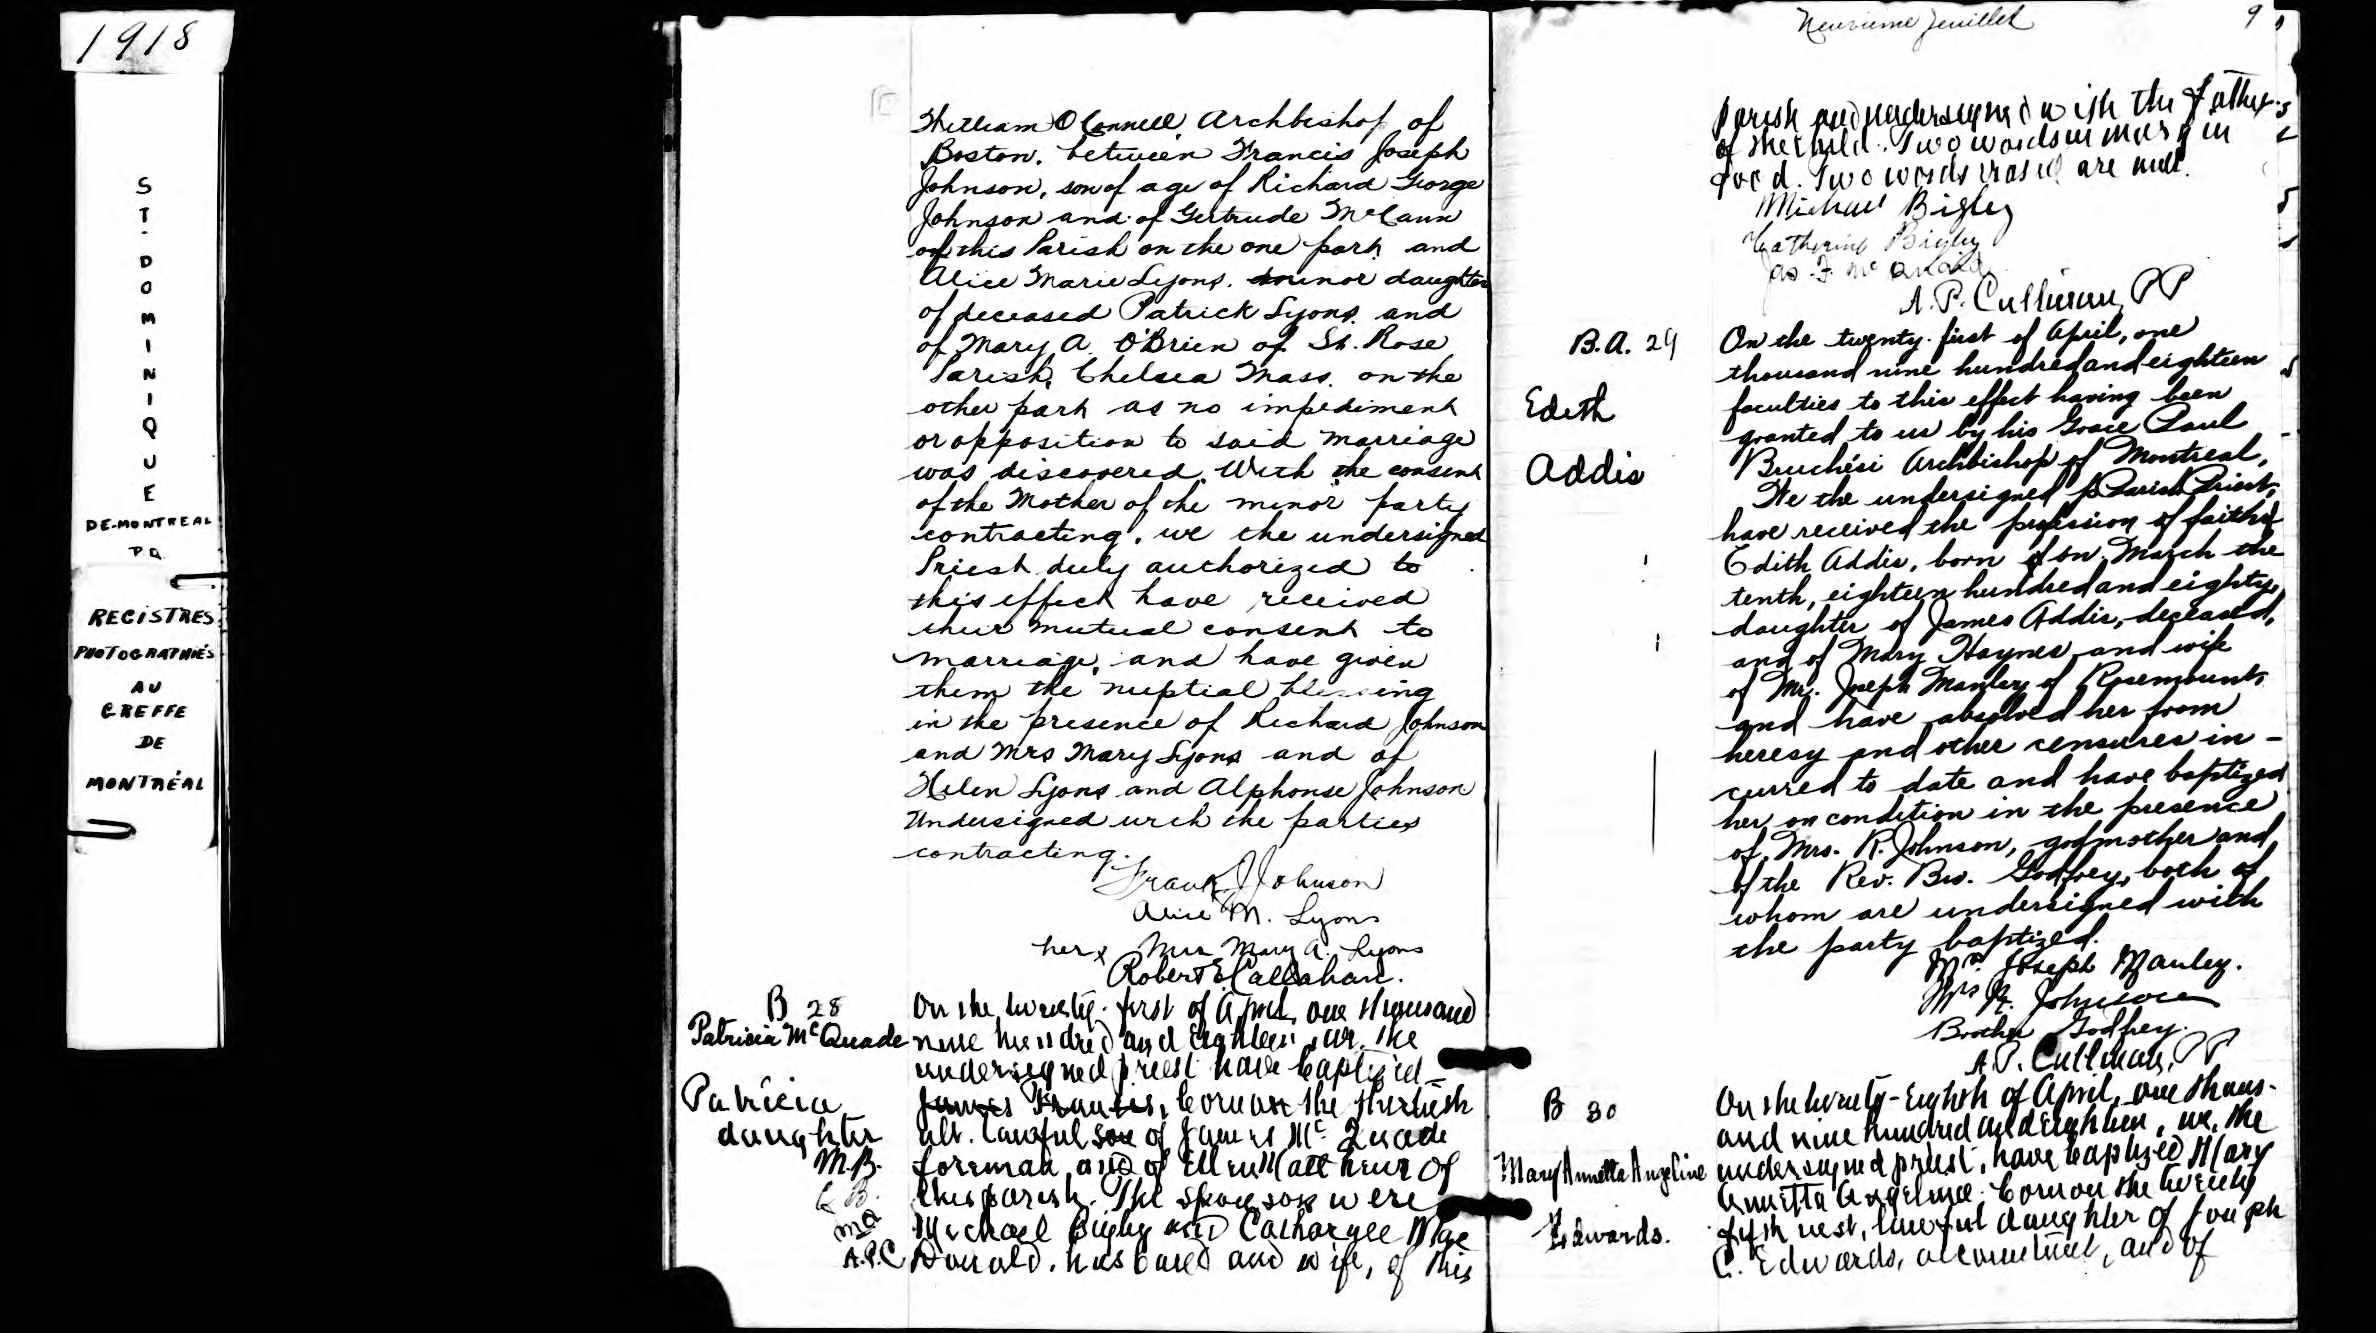 1918
ST. DOMINIQUE
DE-MONTREAL
P.Q.
REGISTRES
PHOTOGRAPHIÉS
AU
GREFFE
DE
MONTRÉAL
William O'Connell, Archbishop of
Boston, between Francis Joseph
Johnson, son of age of Richard George
Johnson and of Gertrude McCann
of this Parish on the one part, and
Alice Marie Lyons, minor daughter
of deceased Patrick Lyons and
of Mary A. O'Brien of St. Rose
Parish, Chelsea Mass. on the
other part as no impediment
or opposition to said marriage
was discovered. With the consent
of the Mother of the minor party
contracting, we the undersigned
Priest duly authorized to
this effect have received
their mutual consent to
marriage, and have given
them the nuptial blessing
in the presence of Richard Johnson
and Mrs Mary Lyons and of
Helen Lyons and Alphonse Johnson
Undersigned with the parties
contracting.
Frank J Johnson
Alice M. Lyons
her x Mrs Mary A. Lyons
Robert E Callahan.
B 28
Patricia McQuade
Patricia
daughter
M.B.
C.B.
A.P.C
On the twenty-first of April, one thousand
nine hundred and eighteen, we, the
undersigned priest have baptized
James Francis, born on the thirtieth
ult. lawful son of James McQuade
foreman, and of Ellen of
this parish. The sponsors were
Michael Bigley and Catharyne Mac
Donald, husband and wife, of this
Neuvieme feuillet 9
parish and undersigned with the father
of the child. Two words in margin
good. Two words erased are null.
Michael Bigley
Catherine Bigley
A.P. Cullinan, PP
B.A. 29
Edith
Addis
On the twenty-first of April, one
thousand nine hundred and eighteen
faculties to this effect having been
granted to us by his Grace Paul
Bruchési Archbishop of Montreal,
We the undersigned Parish Priest,
have received the profession of faith of
Edith Addis, born on March the
tenth, eighteen hundred and eighty,
daughter of James Addis, deceased,
and of Mary Haynes and wife
of Mr. Joseph Manley of Rosemount
and have absolved her from
heresy and other censures in-
curred to date and have baptized
her on condition in the presence
of Mrs. R. Johnson, godmother and
of the Rev. Bro. Godfrey, both of
whom are undersigned with
the party baptized.
Mrs. Joseph Manley.
Mrs R. Johnson
Brother Godfrey.
A.P. Cullinan, PP
B 30
Mary Annetta Angeline
Edwards.
On the twenty-eighth of April, one thous-
and nine hundred and eighteen, we, the
undersigned priest, have baptized Mary
Annetta Angeline born on the twenty
fifth inst, lawful daughter of Joseph
C. Edwards, accountant, and of